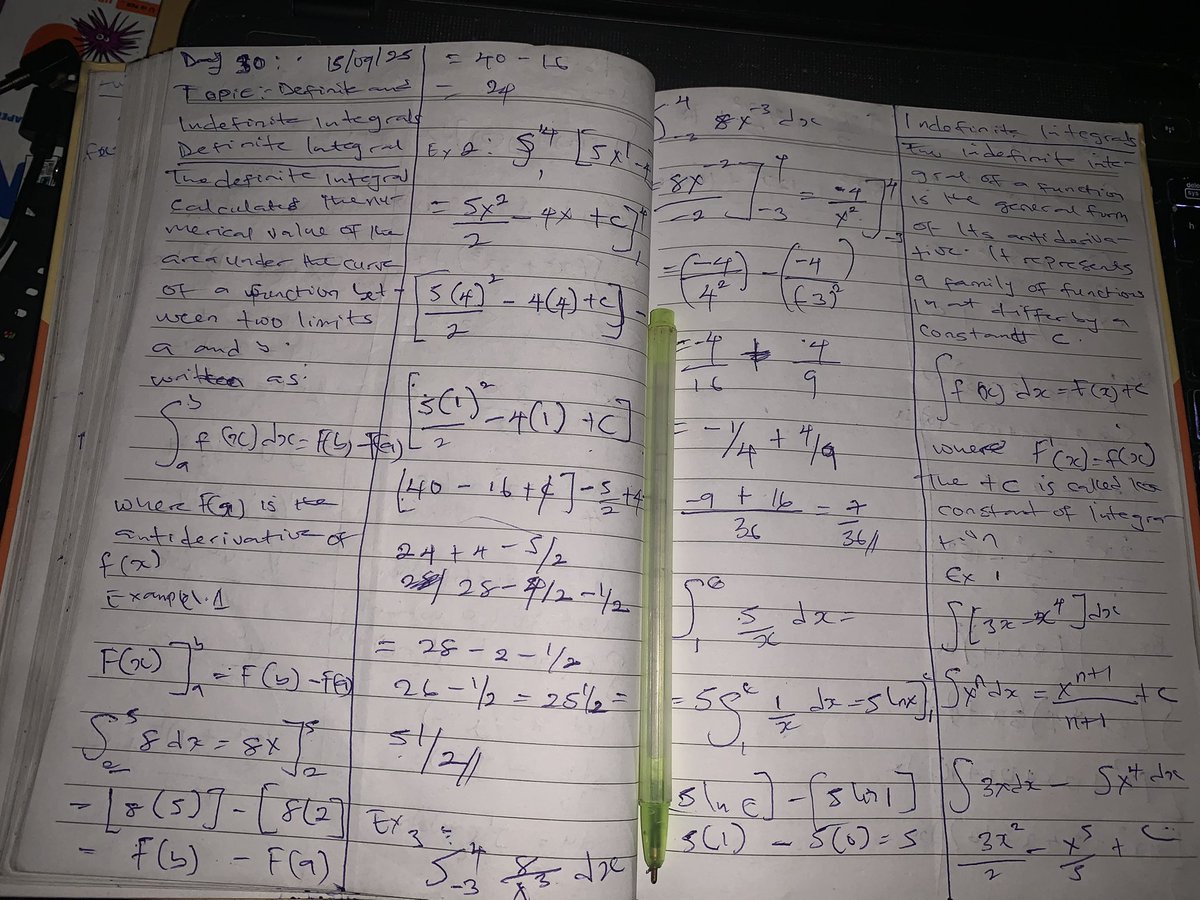 Day 30: 15/09/25
Topic:- Definite and
Indefinite Integrals
Definite Integral
The definite Integral
calculates the nu-
merical value of the
area under the curve
of a function bet-
ween two limits
a and b.
written as:
∫_a^b f(x) dx = F(b) - F(a)
where F(x) is the
antiderivative of
f(x)
Example 1
F(x)]_a^b = F(b) - F(a)
∫_2^5 8 dx = 8x]_2^5
= [8(5)] - [8(2]
= F(b) - F(a)
= 40 - 16
= 24
Ex 2: ∫_1^4 [5x^1 -
= 5x^2/2 - 4x + c]_1^4
[5(4)^2/2 - 4(4) + c] -
[5(1)^2/2 - 4(1) + C]
[40 - 16 + ¢] - 5/2 + 4
24 + 4 - 5/2
28 - 4/2 - 1/2
= 28 - 2 - 1/2
26 - 1/2 = 25 1/2 =
51/2//
Ex 3:
∫_-3^4 8/x^3 dx
8x^-3 dx
= 8x^-2/-2]_-3^4 = -4/x^2]_-3^4
= (-4/4^2) - (-4/(-3)^2)
= -4/16 + 4/9
= -1/4 + 4/9
-9 + 16/36 = 7/36//
∫_1^e 5/x dx =
= 5∫_1^e 1/x dx = 5 ln x]_1^e
5 ln e] - [5 ln 1]
5(1) - 5(0) = 5
Indefinite Integrals
The indefinite inte-
gral of a function
is the general form
of its antideriva-
tive. It represents
a family of functions
that differ by a
constant C.
∫f(x) dx = F(x) + c
where F'(x) = f(x)
The + c is called the
constant of Integra
tion
Ex 1
∫[3x - x^4] dx
∫x^n dx = x^n+1/n+1 + c
∫3x dx - ∫x^4 dx
3x^2/2 - x^5/5 + C